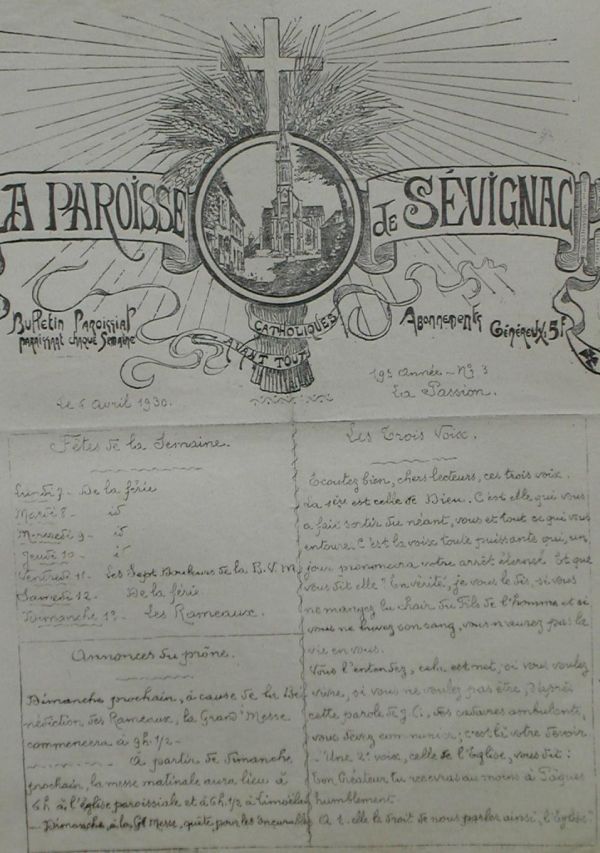 LA PAROISSE de SÉVIGNAC
Bulletin Paroissial
paraissant chaque Semaine
CATHOLIQUES
AVANT TOUT
Abonnements
Généreux, 5f
Le 6 Avril 1930.
19e Année - No 3
La Passion.
Fêtes de la Semaine.
Lundi 7 - De la férie
Mardi 8 - id
Mercredi 9 - id
Jeudi 10 - id
Vendredi 11. Les Sept Douleurs de la B.V.M.
Samedi 12. De la férie
Dimanche 13. Les Rameaux.
Annonces du prône.
Dimanche prochain, à cause de la Bé
nédiction des Rameaux, la Grand'Messe
commencera à 9h. 1/2 -
À partir de dimanche
prochain, la messe matinale aura lieu à
6h à l'Eglise paroissiale et à 6h 1/2 à Limoëlan
- Dimanche, à la Gd Messe, quête pour les Incurables
Les Trois Voix.
Ecoutez bien, chers lecteurs, ces trois voix.
La 1ère est celle de Dieu. C'est elle qui vous
a fait sortir du néant, vous et tout ce qui vous
entoure. C'est la voix toute puissante qui, un
jour prononcera votre arrêt éternel. Et que
vous dit elle? En vérité, je vous le dis, si vous
ne mangez la chair du Fils de l'homme et si
vous ne buvez son sang, vous n'aurez pas la
vie en vous.
Vous l'entendez, cela est net, si vous voulez
vivre, si vous ne voulez pas être, d'après
cette parole de J.C., des cadavres ambulants,
vous devez communier; c'est là votre devoir
- Une 2e voix, celle de l'Eglise, vous dit:
Ton Créateur tu recevras au moins à Pâques
humblement.
A t-elle le droit de nous parler ainsi, l'Eglise?